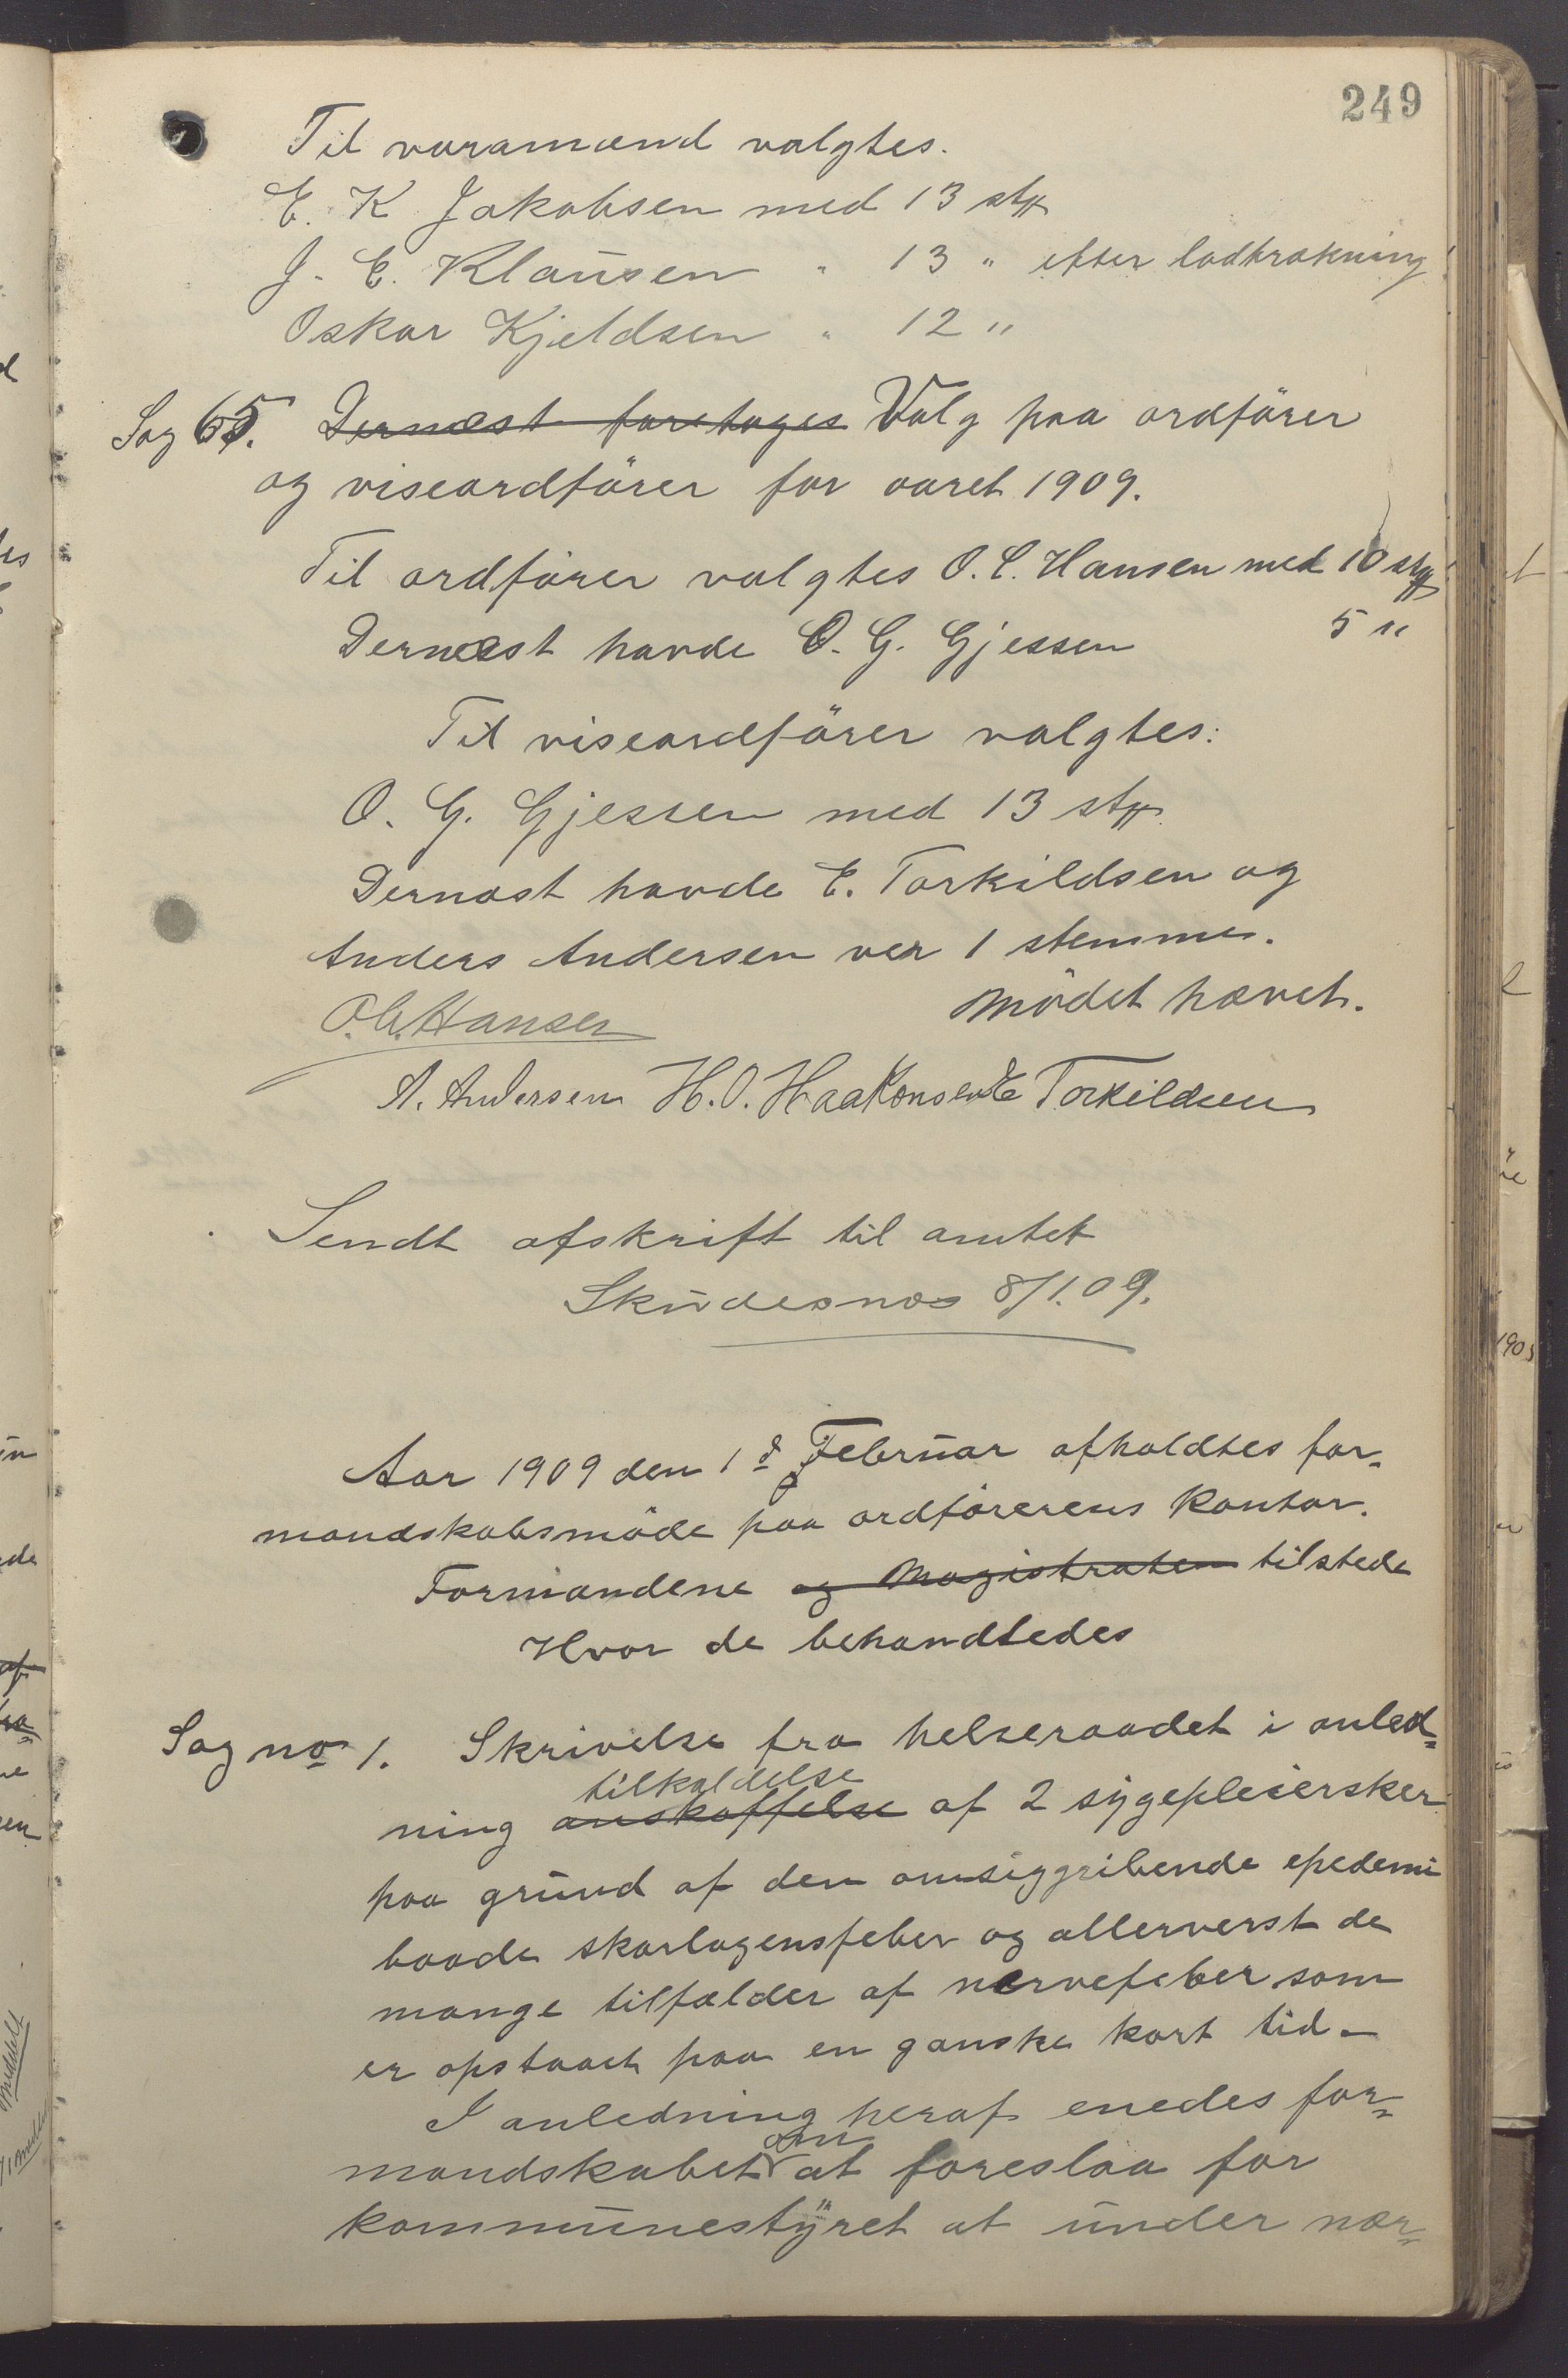 249
Til varamænd valgtes.
E. K Jakobsen med 13 stn
J. E. Klausen " 13 " efter lodtrækning
Oskar Kjeldsen " 12 "
Sag 65. Dernæst foretoges Valg paa ordförer
og viseordförer for aaret 1909.
Til ordförer valgtes O. C. Hansen med 10 stn
Dernæst havde O. G. Gjessen 5 "
Til viseordförer valgtes:
O. G. Gjessen med 13 stn
Dernæst havde E. Torkildsen og
Anders Andersen ver 1 stemme.
Mödet hævet.
O. C. Hansen
A. Andersen H. O. Haakonsen E Torkildsen
Sendt afskrift til amtet
Skudesnæs 8/1.09.
Aar 1909 den 1ᵈ Februar afholdtes for-
mandskabsmöde paa ordförerens Kontor.
Formændene og Magistraten tilstede
Hvor de behandledes
Sag no 1. Skrivelse fra helseraadet i anled-
tilkaldelse
ning anskaffelse af 2 sygepleiersker
paa grund af den omsiggribende epedemi
baade skarlagensfeber og allerverst de
mange tilfælder af nervefeber som
er opstaaet paa en ganske kort tid -
I anledning heraf enedes for-
mandskabet om at foreslaa for
kommunestyret at under nær-